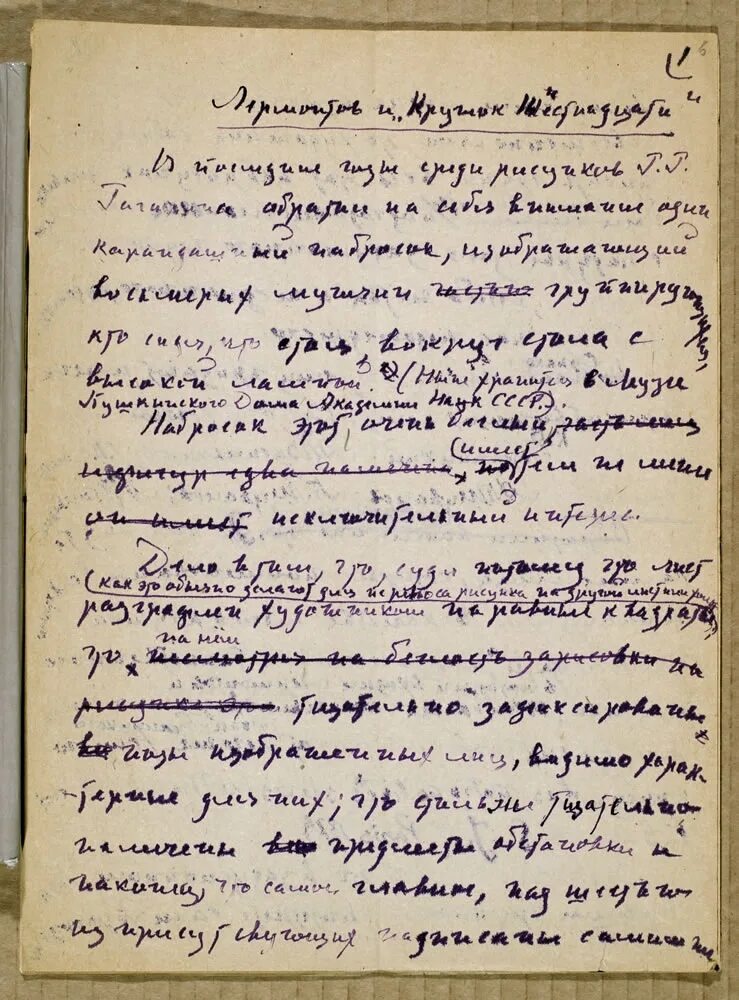 1
Лермонтов и „Кружок Шестнадцати"
В последние годы среди рисунков Г.Г.
Гагарина обратил на себя внимание один
карандашный набросок, изображающий
восьмерых мужчин группирую
кто сидя, кто стоя вокруг стола с
высокой лампой. (Ныне хранится в Музее
Пушкинского Дома Академии Наук СССР).
Набросок этот, очень беглый, часть лиц
(имеет
и фигур едва намечена, тем не менее
он имеет исключительный интерес.
Дело в том, что, судя потому что лист
(как это обычно делают для переноса рисунка на другой лист или
разграфлен художником на равные квадраты
на нём
что несмотря на беглость зарисовки на
рисунке тщательно зафиксированы
позы изображенных лиц, видимо харак-
терные для них; что тщательно
намечены предметы обстановки и
наконец, что самое главное, над шестью
из присутствующих надписаны фамилии